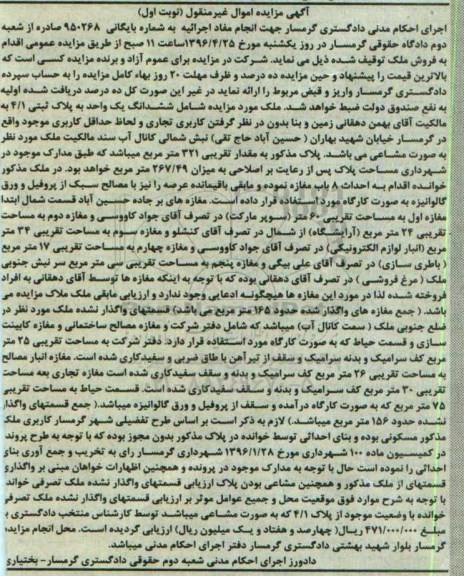 آگهی مزایده اموال غیرمنقول (نوبت اول)
اجرای احکام مدنی دادگستری گرمسار جهت انجام مفاد اجرائیه به شماره بایگانی ۹۵۰۲۶۸ صادره از شعبه
دوم دادگاه حقوقی گرمسار در روز یکشنبه مورخ ۱۳۹۶/۴/۲۵ ساعت ۱۱ صبح از طریق مزایده عمومی اقدام
به فروش ملک توقیف شده ذیل می نماید. شرکت در مزایده برای عموم آزاد و برنده مزایده کسی است که
بالاترین قیمت را پیشنهاد و حین مزایده ده درصد و ظرف مهلت ۲۰ روز بهاء کامل مزایده را به حساب سپرده
دادگستری گرمسار واریز و قبض مربوط را ارائه نماید در غیر این صورت کل ده درصد دریافت شده اولیه
به نفع صندوق دولت ضبط خواهد شد. ملک مورد مزایده شامل ششدانگ یک واحد به پلاک ثبتی ۴/۱ به
مالکیت آقای بهمن دهقانی زمین و بنا بدون در نظر گرفتن کاربری تجاری و لحاظ حداقل کاربری موجود واقع
در گرمسار خیابان شهید بهاران ( حسین آباد حاج تقی) نبش شمالی کانال آب سند مالکیت ملک مورد نظر
به صورت مشاعی می باشد. پلاک مذکور به مقدار تقریبی ۳۲۱ متر مربع میباشد که طبق مدارک موجود در
شهرداری مساحت پلاک پس از رعایت بر اصلاحی به میزان ۲۶۷/۴۹ متر مربع خواهد بود. در ملک مذکور
خوانده اقدام به احداث ۸ باب مغازه نموده و مابقی باقیمانده عرصه را نیز با مصالح سبک از پروفیل و ورق
گالوانیزه به صورت کارگاه مورد استفاده قرار داده است. مغازه های بر جاده حسین آباد قسمت شمال ابتدا
مغازه اول به مساحت تقریبی ۶۰ متر (سوپر مارکت) در تصرف آقای جواد کاووسی و مغازه دوم به مساحت
تقریبی ۲۴ متر مربع (آرایشگاه) از شمال در تصرف آقای کنشلو و مغازه سوم به مساحت تقریبی ۳۴ متر
مربع (انبار لوازم الکترونیکی) در تصرف آقای جواد کاووسی و مغازه چهارم به مساحت تقریبی ۱۷ متر مربع
( باطری سازی) در تصرف آقای علی بیگی و مغازه پنجم به مساحت تقریبی سی متر مربع سر نبش جنوبی
ملک ( مرغ فروشی ) در تصرف آقای دهقانی بوده که با توجه به اینکه مغازه ها توسط آقای دهقانی به افراد
فروخته شده لذا در مورد این مغازه ها هیچگونه ادعایی وجود ندارد و ارزیابی مابقی ملک ملاک مزایده می
باشد. ( جمع مغازه های واگذار شده حدود ۱۶۵ متر مربع می باشد) قسمتهای واگذار نشده ملک مورد نظر در
ضلع جنوبی ملک ( سمت کانال آب) میباشد که شامل دفتر شرکت و مغازه مصالح ساختمانی و مغازه کابینت
سازی و قسمت حیاط که به صورت کارگاه مورد استفاده قرار دارد: دفتر شرکت به مساحت تقریبی ۲۵ متر
مربع کف سرامیک و بدنه سرامیک و سقف از تیرآهن با طاق ضربی و سفیدکاری شده است. مغازه انبار مصالح
به مساحت تقریبی ۲۶ متر مربع کف سرامیک و بدنه و سقف سفیدکاری شده است مغازه تجاری بعه مساحت
تقریبی ۳۰ متر مربع کف سرامیک و بدنه و سقف سفیدکاری شده است. قسمت حیاط به مساحت تقریبی
۷۵ متر مربع که به صورت کارگاه درآمده و سقف از پروفیل و ورق گالوانیزه میباشد.( جمع قسمتهای واگذار
نشده حدود ۱۵۶ متر مربع میباشد.) لازم به ذکر است بر اساس طرح تفضیلی شهر گرمسار کاربری ملک
مذکور مسکونی بوده و بنای احداثی توسط خوانده در پلاک مذکور بدون مجوز بوده که با توجه به طرح پرونده
در کمیسیون ماده ۱۰۰ شهرداری مورخ ۱۳۹۶/۱/۲۸ شهرداری گرمسار رای به تخریب و جمع آوری بنای
احداثی را نموده است حال با توجه به مدارک موجود در پرونده و همچنین اظهارات خواهان مبنی بر واگذاری
قسمتهای از ملک مذکور و همچنین مشاعی بودن پلاک ارزیابی قسمتهای واگذار نشده ملک تصرفی خوانده
با توجه به شرح موارد فوق موقعیت محل و جمیع عوامل موثر بر ارزیابی قسمتهای واگذار نشده ملک تصرفی
خوانده با وضعیت موجود از پلاک ۴/۱ که به صورت مشاعی میباشد توسط کارشناس منتخب دادگستری به
مبلغ ۴۷۱/۰۰۰/۰۰۰ ریال( چهارصد و هفتاد و یک میلیون ریال) ارزیابی گردیده است. محل انجام مزایده:
گرمسار بلوار شهید بهشتی دادگستری گرمسار دفتر اجرای احکام مدنی میباشد.
دادورز اجرای احکام مدنی شعبه دوم حقوقی دادگستری گرمسار- بختیاری